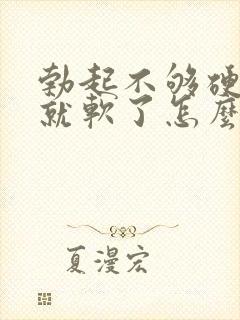 勃起不够硬
就軟了怎麼
夏漫宏